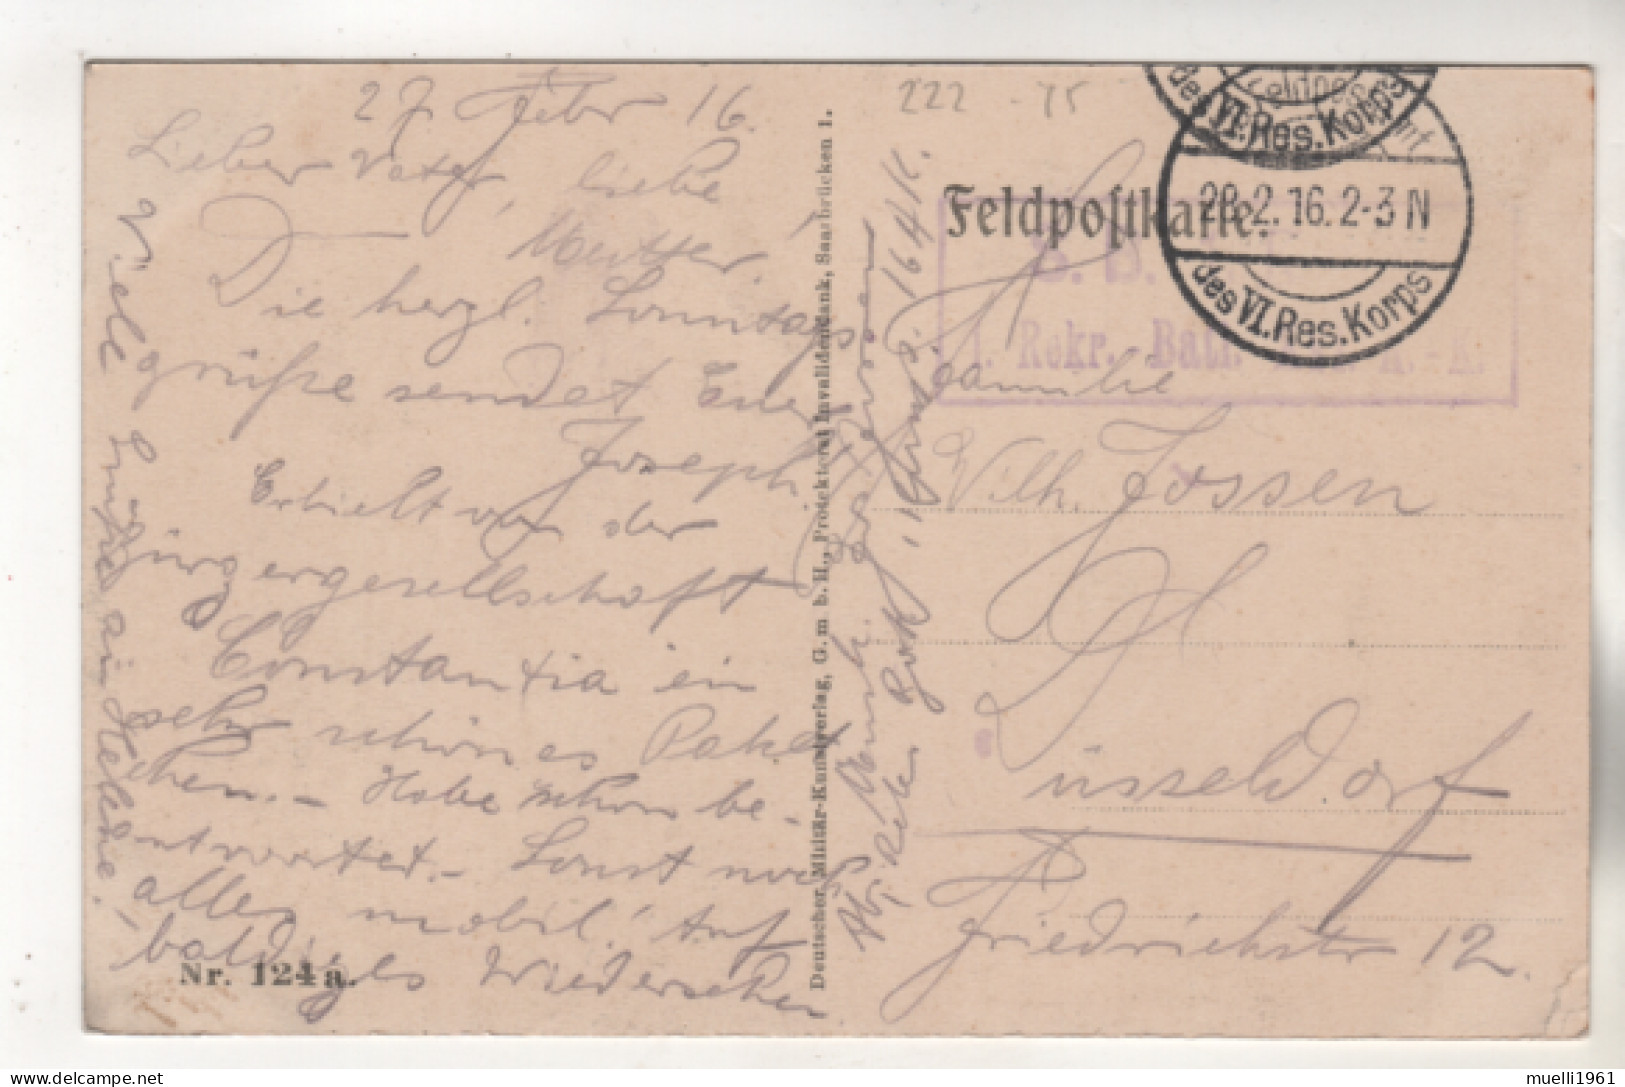 27. Febr 16.
Lieber Vater, liebe
Mutter!
Die herzl. Sonntags
grüße sendet Euer
Joseph
Erhielt von der
Bürgergesellschaft
Constantia ein
sehr schönes Paket
chen. - Habe schon be-
antwortet. - Sonst noch
alles mobil! Auf
baldiges Wiedersehen
Viele Grüße an Helene!
Nr. 124 a.
Deutscher Militär-Kunstverlag, G. m. b. H., Protektorat Invalidendank, Saarbrücken 1.
Abs.
16 A.K.
222 - 75
Feldpostkarte.
S. B.
Rekr. - Batl.
des VI. Res. Korps
28.2.16. 2-3 N
des VI. Res. Korps
Familie
Wilh. Jossen
Düsseldorf
Friedrichstr 12.
muelli1961